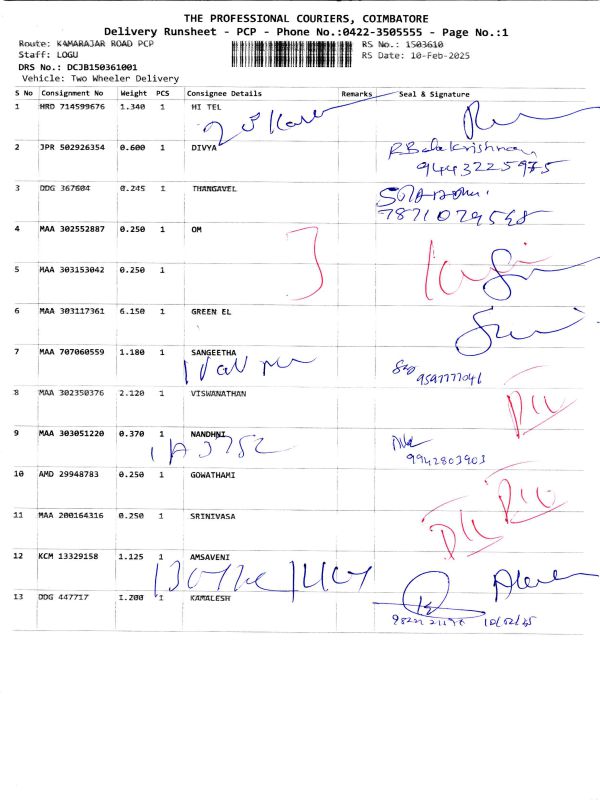 THE PROFESSIONAL COURIERS, COIMBATORE
Delivery Runsheet - PCP - Phone No.:0422-3505555 - Page No.:1
Route: KAMARAJAR ROAD PCP RS No.: 1503610
Staff: LOGU RS Date: 10-Feb-2025
DRS No.: DCJB150361001
Vehicle: Two Wheeler Delivery
S No Consignment No Weight PCS Consignee Details Remarks Seal & Signature
1 HRD 714599676 1.340 1 HI TEL
2 JPR 502926354 0.600 1 DIVYA R Balakrishnan
9443225975
3 DDG 367604 0.245 1 THANGAVEL
7871079548
4 MAA 302552887 0.250 1 OM
5 MAA 303153042 0.250 1
6 MAA 303117361 6.150 1 GREEN EL
7 MAA 707060559 1.180 1 SANGEETHA
9597777041
8 MAA 302350376 2.120 1 VISWANATHAN
9 MAA 303051220 0.370 1 NANDHNI
9942803903
10 AMD 29948783 0.250 1 GOWATHAMI
11 MAA 200164316 0.250 1 SRINIVASA
12 KCM 13329158 1.125 1 AMSAVENI
13 DDG 447717 1.200 1 KAMALESH
10/02/25